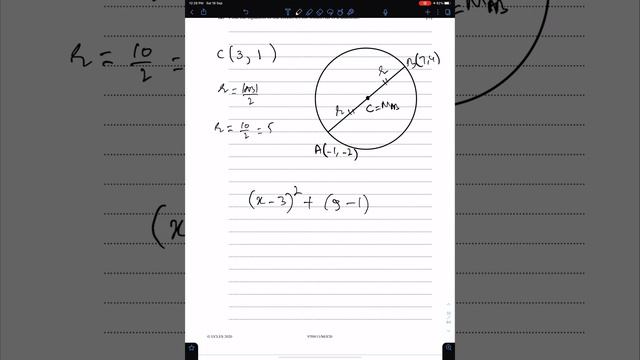 C(3,1)
r = |AB|/2
r = 10/2 = 5
r
B(7,4)
r
C=M_AB
A(-1,-2)
(x-3)² + (y-1)
© UCLES 2020